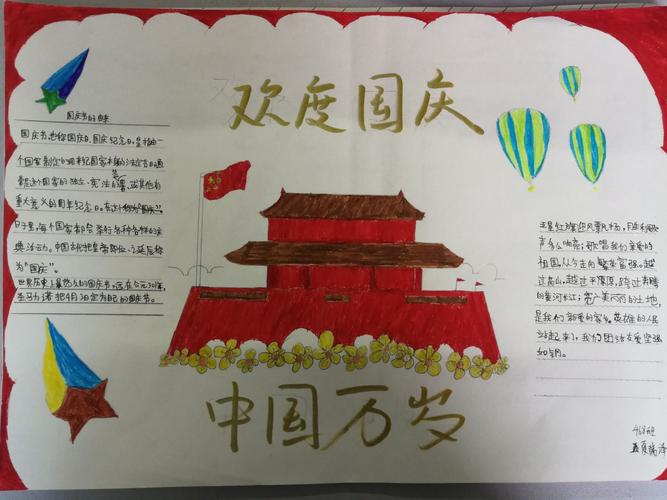 欢度国庆
国庆节的由来
国庆节也称国庆日、国庆纪念日，是指由一
个国家制定的用来纪念国家本身的法定节日。通
常是这个国家的独立、宪法的签署、或其他有
重大意义的周年纪念日。
日子里，每个国家都会举行各种各样的庆
典活动。中国古代把皇帝即位、
为"国庆"。
世界历史上最悠久的国庆节，远在公元301年，
圣马力诺把9月3日定为自己的国庆节。
五星红旗迎风飘扬，
声多么响亮；歌唱我们亲爱的
祖国，从今走向繁荣富强。越
过高山，越过平原，跨过奔腾
的黄河长江；宽广美丽的土地，
是我们亲爱的家乡。英雄的人民
站起来了，我们团结友爱坚强
如钢。
中国万岁
468班